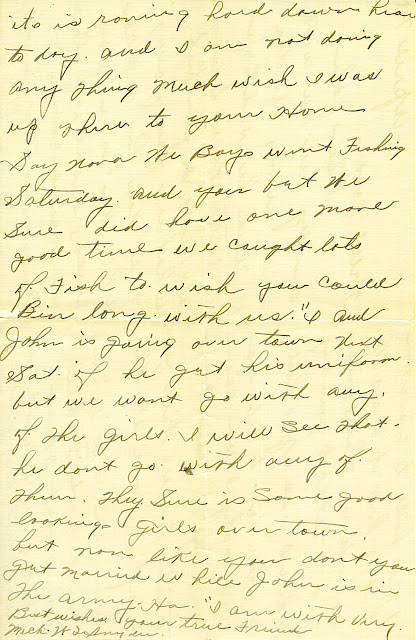 its is roning hard down hear
to day. and I am not doing
any thing much wish I was
up there to your Home
Say Nova We Boys wint Fishing
Saturday. and you bet We
Sure did have one more
good time we caught lots
of Fish to. wish you could
Bin long. with us." I and
John is going over town Next
Sat. if he get his uniform.
but we want go with any.
of the girls. I will see that.
he dont go. with any of.
them. They Sure is Some good
looking girls over town.
but non like you dont you
get married while John is in
the army. Ha. " I am with very.
Best wishes your true Friend
Mech. W.